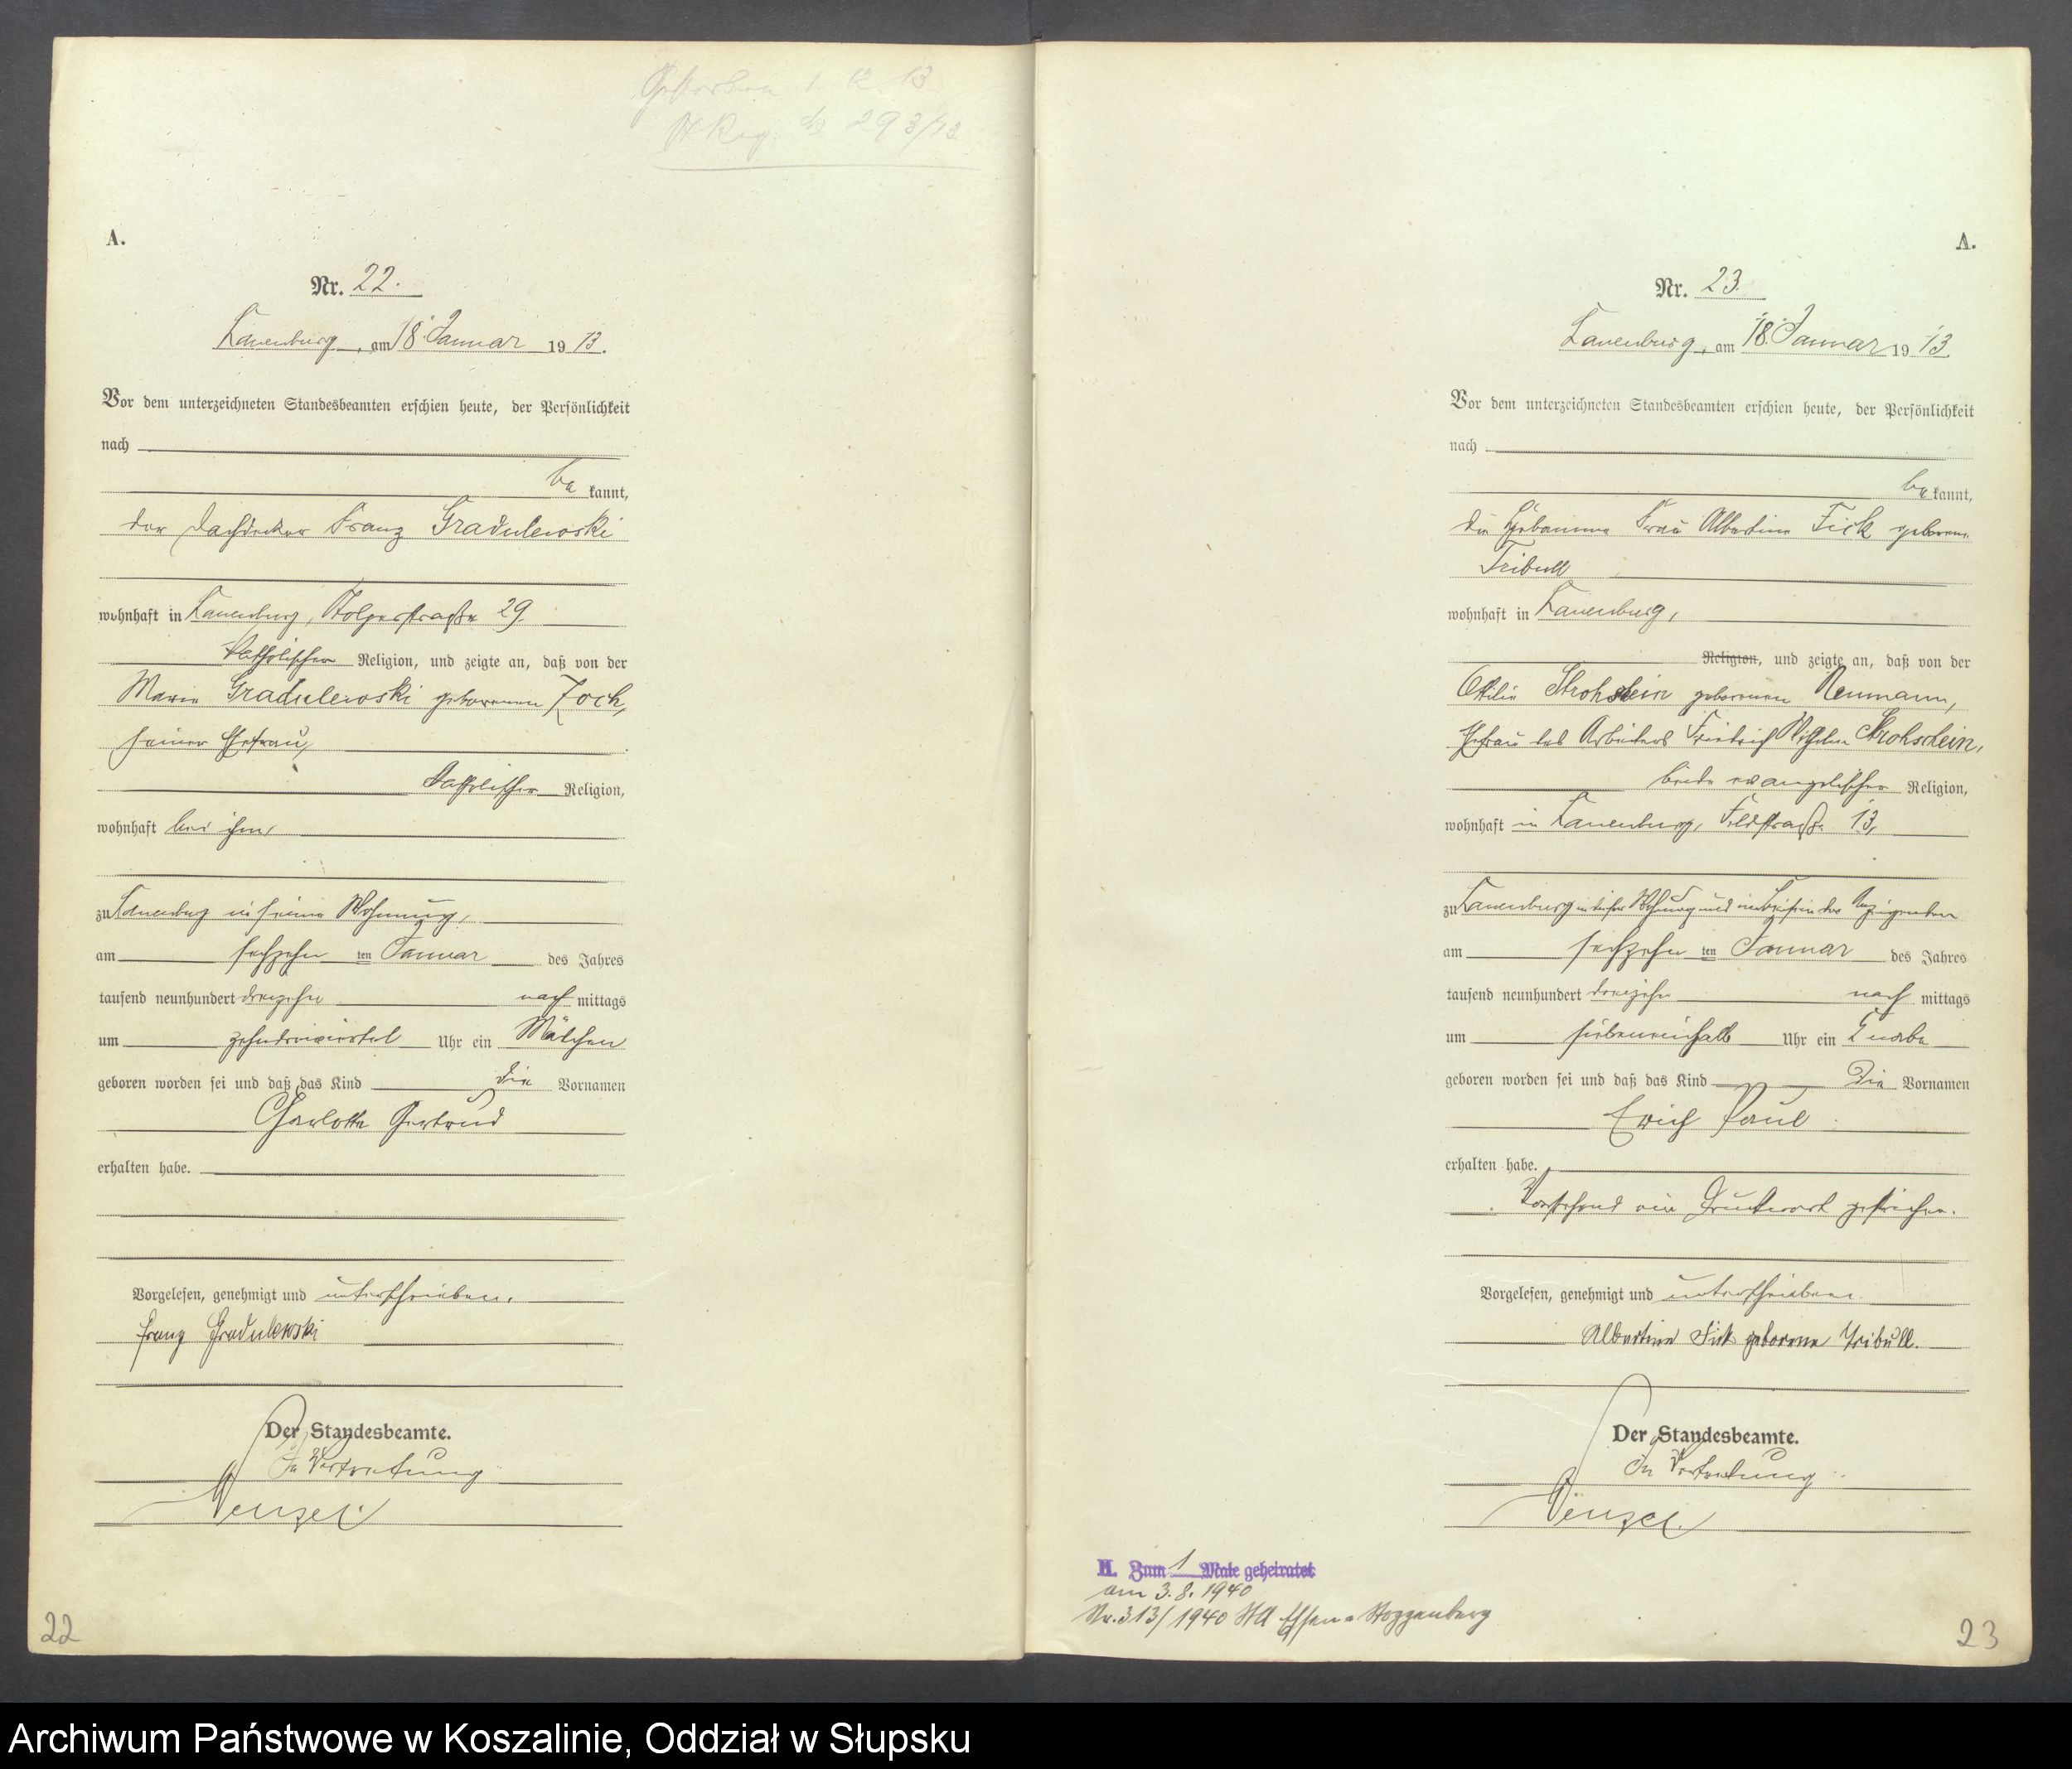 Gestorben 1. 12. 13.
St. Reg. No 293/13
A.
Nr. 22.
Lauenburg, am 18. Januar 1913.
Vor dem unterzeichneten Standesbeamten erschien heute, der Persönlichkeit
nach
be kannt,
der Dachdecker Franz Gradulewski
wohnhaft in Lauenburg, Stolperstraße 29.
katholischer Religion, und zeigte an, daß von der
Marie Gradulewski geborenen Zoch,
seiner Ehefrau,
katholischer Religion,
wohnhaft bei ihm,
zu Lauenburg in seiner Wohnung,
am sechzehn ten Januar des Jahres
tausend neunhundert dreizehn nach mittags
um zehndreiviertel Uhr ein Mädchen
geboren worden sei und daß das Kind die Vornamen
Charlotte Gertrud
erhalten habe.
Vorgelesen, genehmigt und unterschrieben.
Franz Gradulewski
Der Standesbeamte.
In Vertretung
Wenzel
22
A.
Nr. 23.
Lauenburg, am 18. Januar 1913.
Vor dem unterzeichneten Standesbeamten erschien heute, der Persönlichkeit
nach
be kannt,
die Hebamme Frau Albertine Fick geborene
Tribull
wohnhaft in Lauenburg,
Religion, und zeigte an, daß von der
Ottilie Strohschein geborenen Neumann,
Ehefrau des Arbeiters Friedrich Wilhelm Strohschein,
beide evangelischer Religion,
wohnhaft in Lauenburg, Feldstraße 13,
zu Lauenburg in dieser Wohnung und im Beisein der Anzeigenden
am sechzehn ten Januar des Jahres
tausend neunhundert dreizehn nach mittags
um siebeneinhalb Uhr ein Knabe
geboren worden sei und daß das Kind die Vornamen
Erich Paul
erhalten habe.
Vorstehend ein Druckwort gestrichen.
Vorgelesen, genehmigt und unterschrieben.
Albertine Fick geborene Tribull.
Der Standesbeamte.
In Vertretung
Wenzel
H. Zum 1 Male geheiratet
am 3.8.1940
Nr. 313/1940 StA Essen-Stoppenberg
23
Archiwum Państwowe w Koszalinie, Oddział w Słupsku